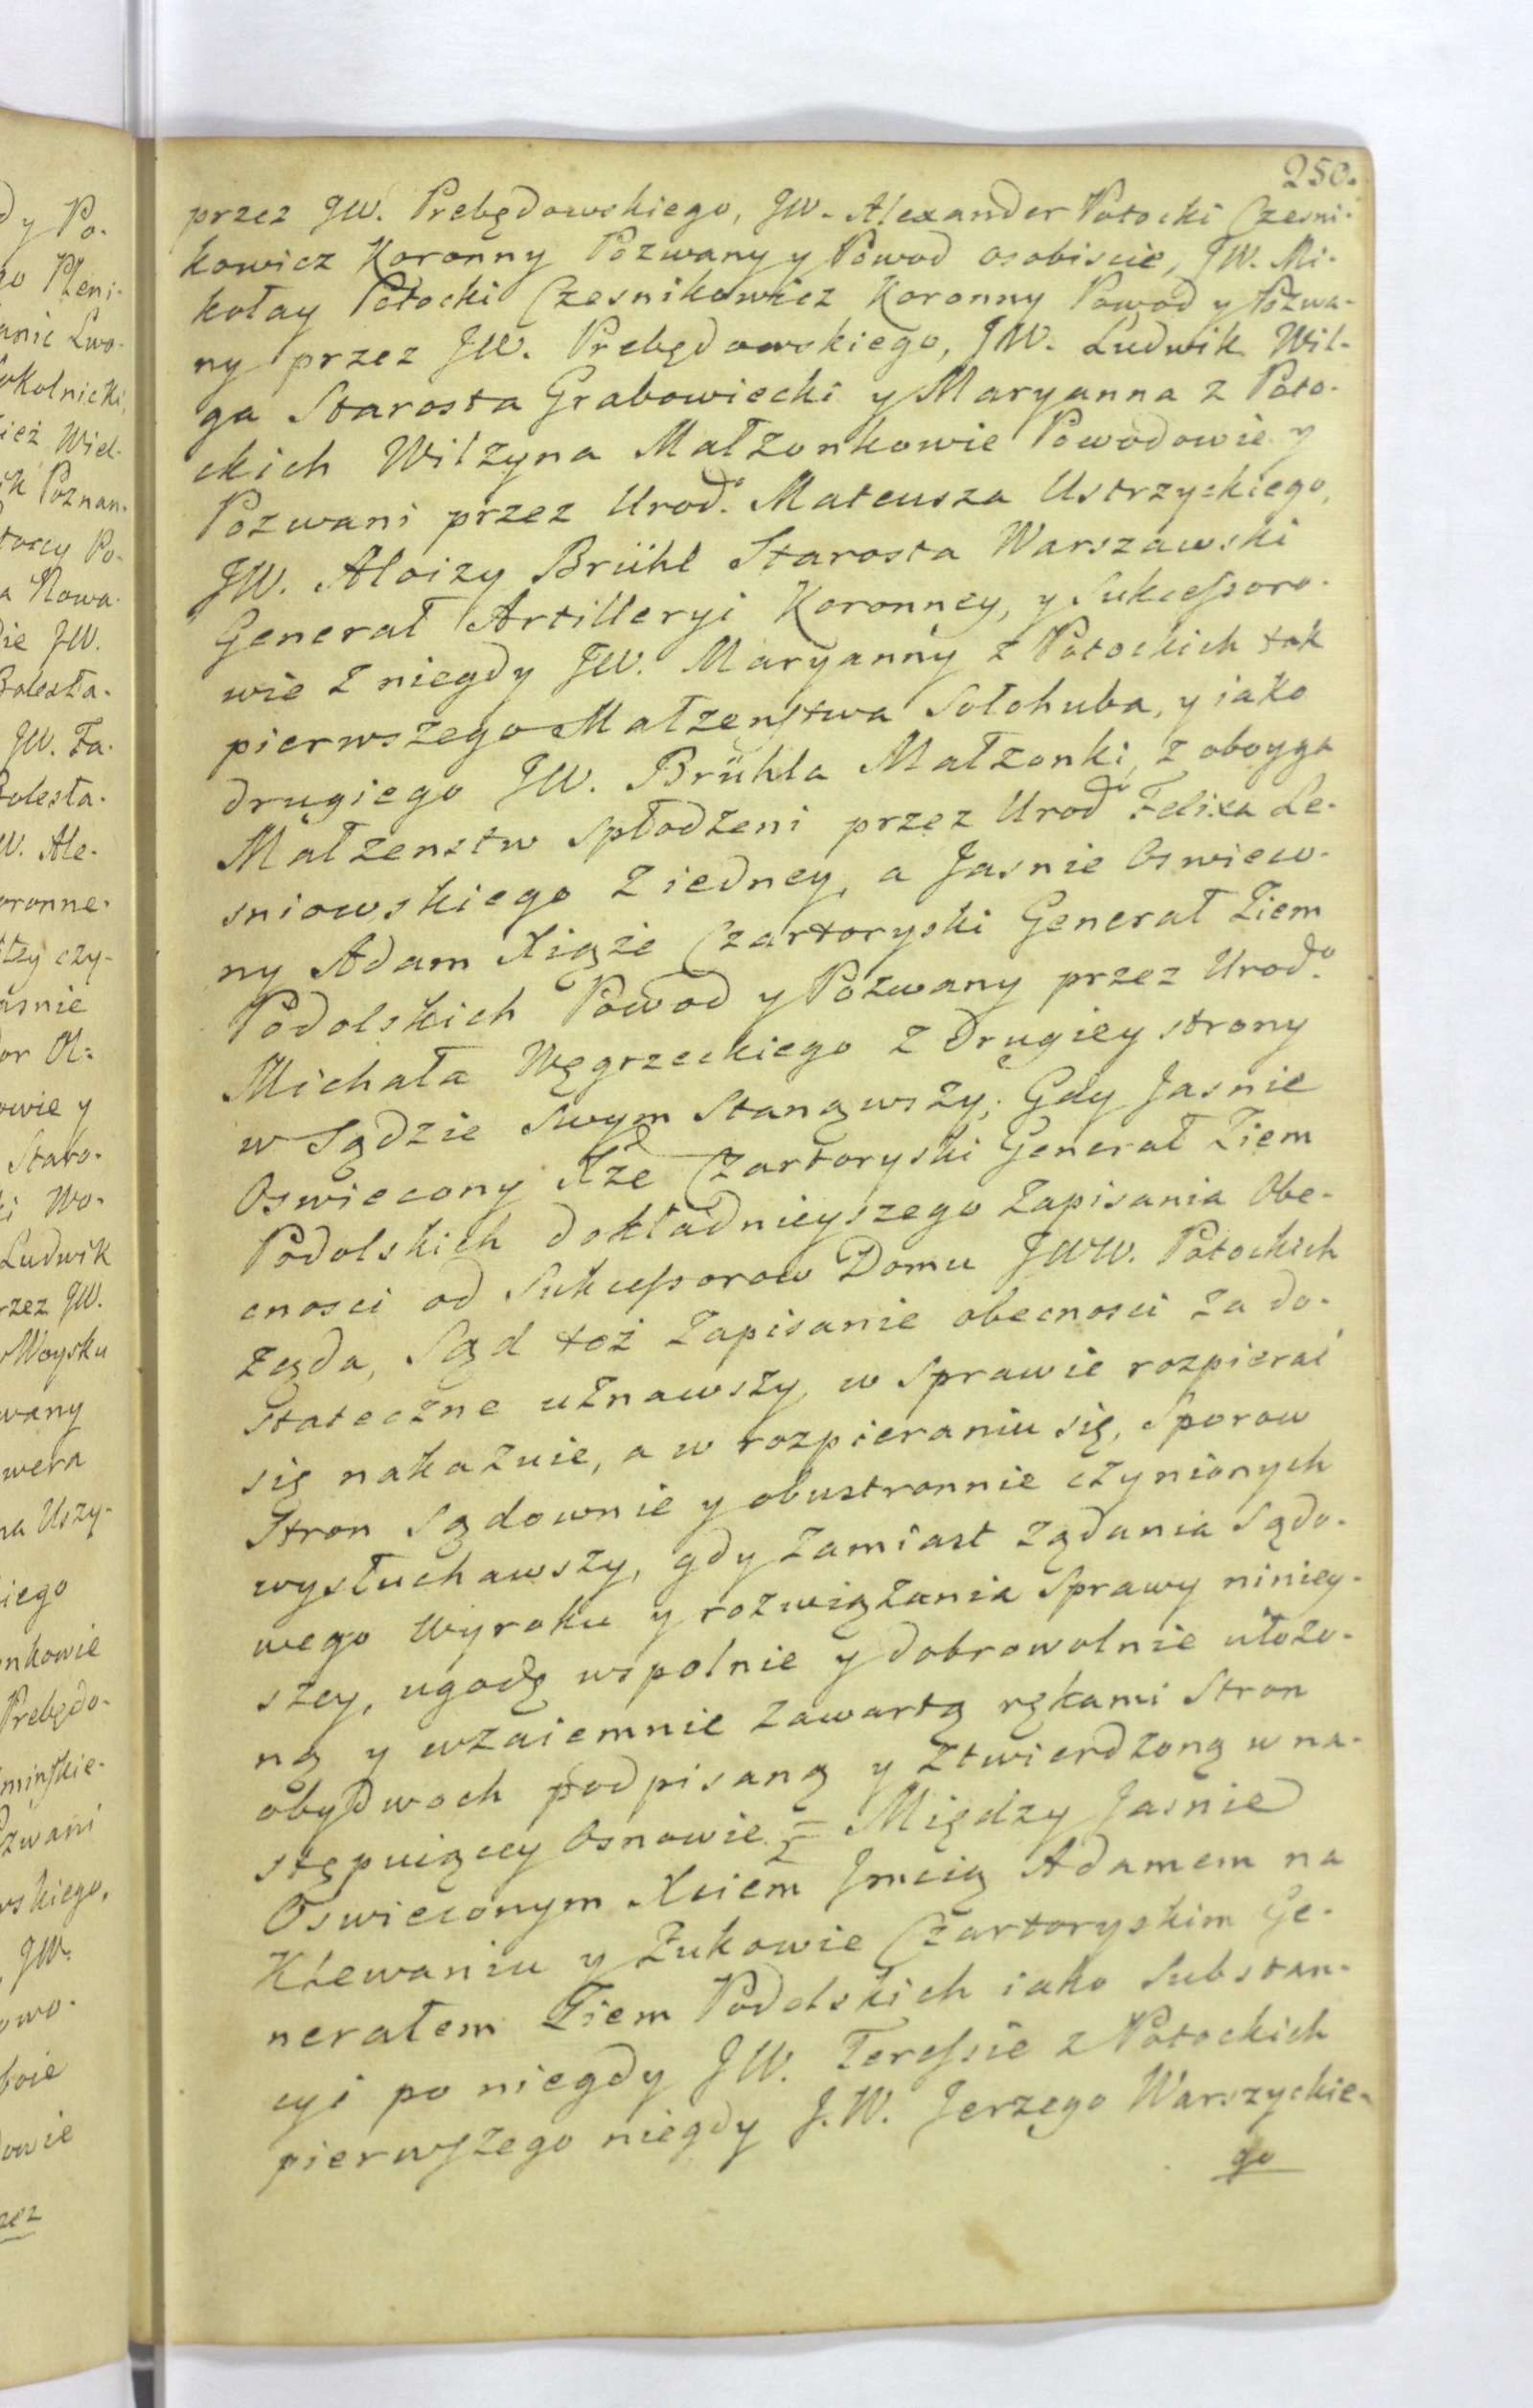 250.
przez JW. Prebędowskiego, JW. Alexander Potocki Czesni-
kowicz Koronny Pozwany y Powod osobiscie, JW. Mi-
kołay Potocki Czesnikowicz Koronny Powod y Pozwa-
ny przez JW. Prebędowskiego, JW. Ludwik Wil-
ga Starosta Grabowiecki y Maryanna z Poto-
ckich Wilzyna Małzonkowie Powodowie y
Pozwani przez Urod.° Mateusza Ustrzyckiego,
JW. Aloizy Brühl Starosta Warszawski
Generał Artilleryi Koronney, y Sukcessoro-
wie z niegdy JW. Maryanny z Potockich tak
pierwszego Małzenstwa Sołohuba, y iako
drugiego JW. Brühla Małzonki, z oboyga
Małzenstw spłodzeni przez Urod° Felixa Le-
sniowskiego z iedney, a Jasnie Oswieco-
ny Adam Xiąże Czartoryski Generał Ziem
Podolskich Powod y Pozwany przez Urod.°
Michała Węgrzeckiego z drugiey strony
w Sądzie swym stanąwszy; Gdy Jasnie
Oswiecony Xże Czartoryski Generał Ziem
Podolskich dokładnieyszego zapisania Obe-
cnosci od Sukcessorow Domu JWW. Potockich
ząda, Sąd toż zapisanie obecnosci za do-
stateczne uznawszy, w Sprawie rozpierać
się nakazuie, a w rozpieraniu się, Sporow
Stron Sądownie y obustronnie czynionych
wysłuchawszy, gdy zamiast ządania Sądo-
wego Wyroku y rozwiązania Sprawy niniey-
szey, ugodę wspolnie y dobrowolnie ułożo-
ną y wzaiemnie zawartą rękami Stron
obydwoch podpisaną y ztwierdzoną w na-
stępuiącey Osnowie = Między Jasnie
Oswieconym Xciem Jmcią Adamem na
Klewaniu y Zukowie Czartoryskim Ge-
nerałem Ziem Podolskich iako Substan-
cyi po niegdy JW. Teressie z Potockich
pierwszego niegdy J.W. Jerzego Warszyckie-
go